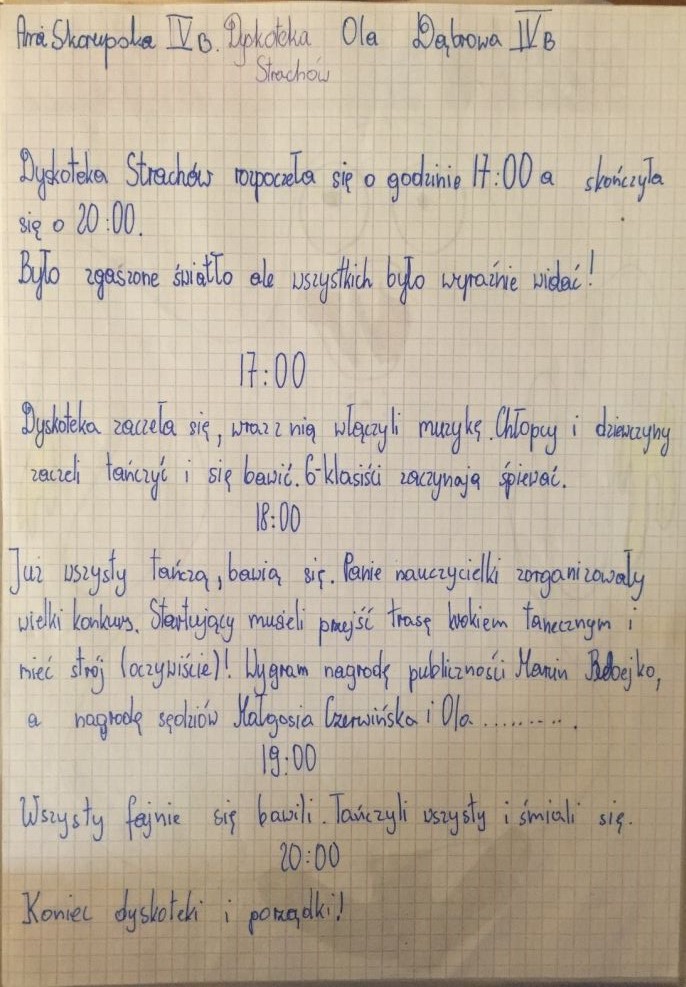 Ania Skorupska IV B. Dyskoteka Ola Dąbrowa IV B
Strachów
Dyskoteka Strachów rozpoczeła się o godzinie 17:00 a skończyła
się o 20:00.
Było zgaszone światło ale wszystkich było wyraźnie widać!
17:00
Dyskoteka zaczeła się, wraz z nią włączyli muzykę. Chłopcy i dziewczyny
zaczeli tańczyć i się bawić. 6-klasiści zaczynają śpiewać.
18:00
Już wszysty tańczą, bawią się. Panie nauczycielki zorganizowały
wielki konkurs. Startujący musieli przejść trasę krokiem tanecznym i
mieć strój (oczywiście)! Wygram nagrodę publiczności Marcin
a nagrodę sędziów Małgosia Czerwińska i Ola ..........
19:00
Wszysty fajnie się bawili. Tańczyli wszysty i śmiali się.
20:00
Koniec dyskoteki i porządki!